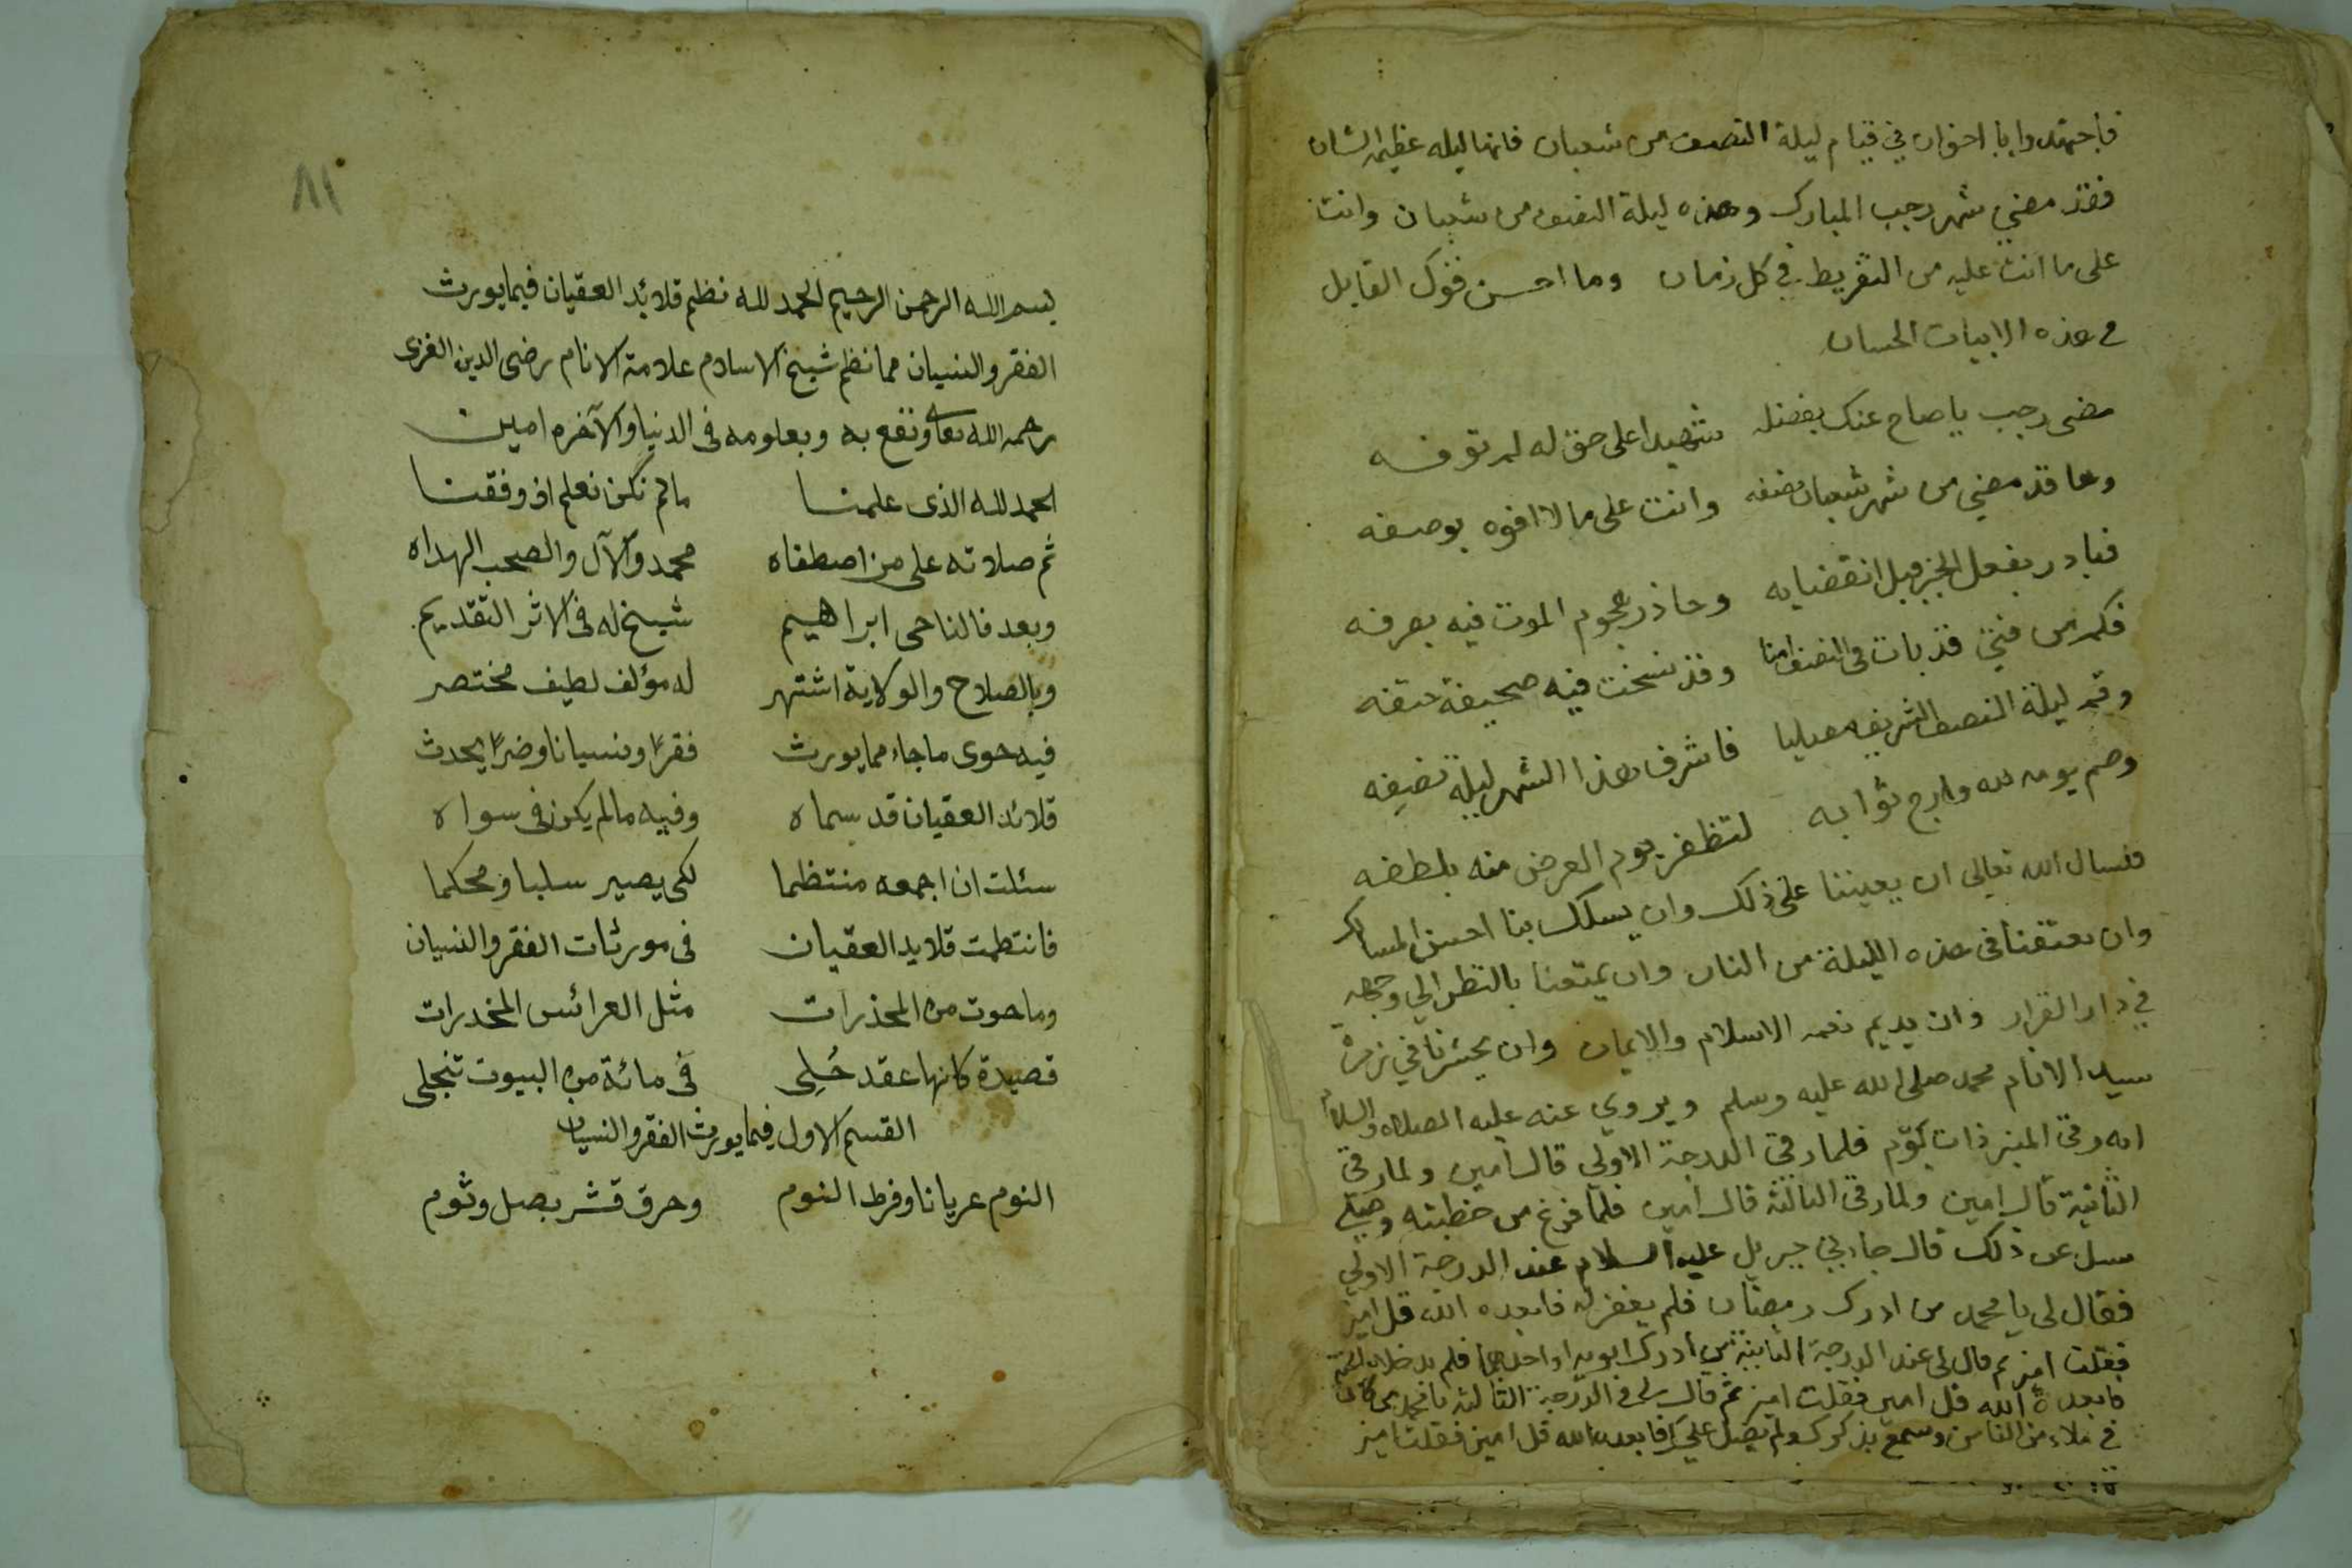 فاجتهدوا يا اخوان في قيام ليلة النصف من شعبان فانها ليله عظيمة الشان
فقد مضي شهر رجب المبارك وهذه ليلة النصف من شعبان وانت
على ما انت عليه من التفريط في كل زمان وما احسن قول القايل
في هذه الابيات الحسان
مضى رجب يا صاح عنك بفضله شهيدا على حق له لم توفه
وها قد مضي من شهر شعبان نصفه وانت على ما لا افوه بوصفه
فبادر بفعل الخير قبل انقضايه وحاذر هجوم الموت فيه بصرفه
فكم من فتي قد بات في النصف امنا وقد نسخت فيه صحيفة حتفه
وقم ليلة النصف الشريف مصليا فاشرف هذا الشهر ليلة نصفه
وصم يومه لله وارج ثوابه لتظفر يوم العرض منه بلطفه
فنسال الله تعالى ان يعيننا على ذلك وان يسلك بنا احسن المسالك
وان يعتقنا في هذه الليلة من النار وان يمتعنا بالنظر الي وجهه
في دار القرار وان يديم نعمه الاسلام والايمان وان يحشرنا في زمرة
سيد الانام محمد صلى الله عليه وسلم ويروي عنه عليه الصلاه والسلام
انه رقي المنبر ذات يوم فلما رقي الدرجة الاولي قال امين ولما رقي
الثانية قال امين ولما رقي الثالثة قال امين فلما فرغ من خطبته وصلي
سل عن ذلك قال جاءني جبريل عليه السلام عند الدرجة الاولي
فقال لي يا محمد من ادرك رمضان فلم يغفر له فابعده الله قل امين
فقلت امين ثم قال لي عند الدرجة الثانية من ادرك ابويه او احدهما فلم يدخلاه الجنة
فابعده الله قل امين فقلت امين ثم قال لي في الدرجة الثالثة يا محمد من كان
في ملاء من الناس وسمع بذكرك ولم يصل عليك فابعده الله قل امين فقلت امين
٨١
بسم الله الرحمن الرحيم الحمد لله نظم قلائد العقيان فيما يورث
الفقر والنسيان مما نظم شيخ الاسلام علامة الانام رضى الدين الغزى
رحمه الله تعالى ونفع به وبعلومه فى الدنيا والآخره امين
الحمد لله الذى علمنا مالم نكن نعلم اذ وفقنا
ثم صلاته على من اصطفاه محمد والآل والصحب الهداه
وبعد فالناجى ابراهيم شيخ له فى الاثر التقديم
وبالصلاح والولاية اشتهر له مؤلف لطيف مختصر
فيه حوى ما جاء مما يورث فقرًا ونسيانا وضرًا يحدث
قلائد العقيان قد سماه وفيه مالم يكن فى سواه
سئلت ان اجمعه منتظما لكى يصير سلبا ومحكما
فانتظمت قلايد العقيان فى مورثات الفقر والنسيان
وما حوت من المحذرات مثل العرائس المخدرات
قصيدة كانها عقد حُلِى فى مائة من البيوت تنجلى
القسم الاول فيما يورث الفقر والنسيان
النوم عريانا وفرط النوم وحرق قشر بصل وثوم